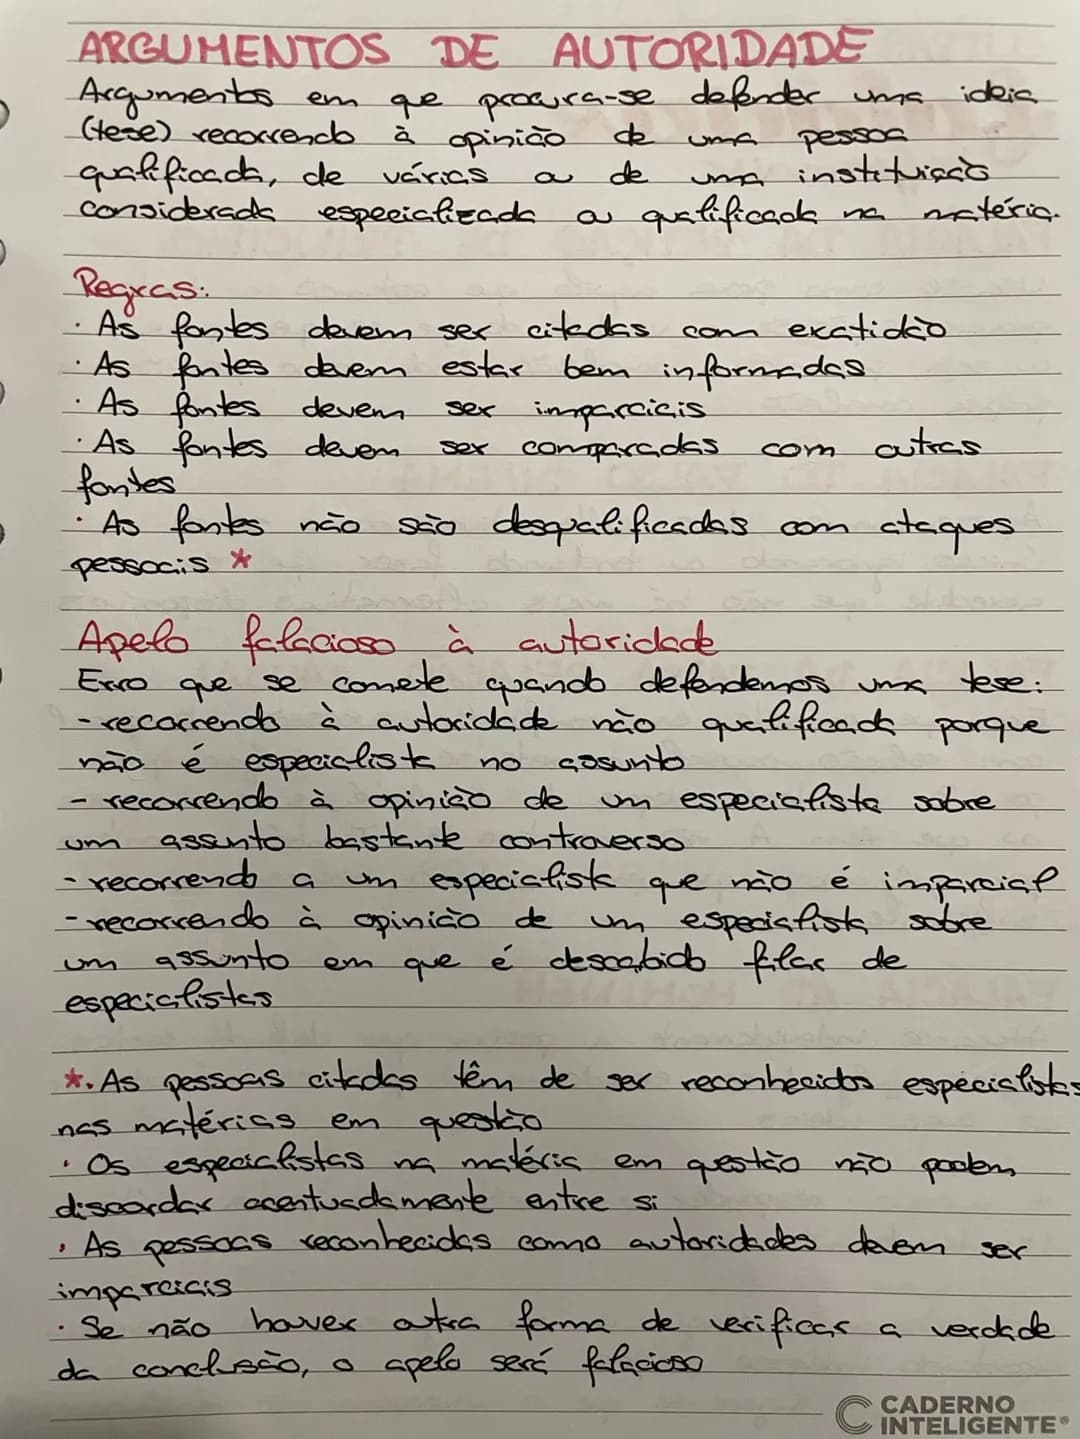 ARGUMENTOS DE AUTORIDADE
Argumentos em que procura-se defender uma ideia
(tese) recorrendo à opinião de uma pessoa
qualificada, de várias ou de uma instituição
considerada especializada ou qualificada na matéria.
Regras:
· As fontes devem ser citadas com exatidão
· As fontes devem estar bem informadas
· As fontes devem ser imparciais
· As fontes devem ser comparadas com outras
fontes
· As fontes não são desqualificadas com ataques
pessoais *
Apelo falacioso à autoridade
Erro que se comete quando defendemos uma tese:
- recorrendo à autoridade não qualificada porque
não é especialista no assunto
- recorrendo à opinião de um especialista sobre
um assunto bastante controverso
- recorrendo a um especialista que não é imparcial
- recorrendo à opinião de um especialista sobre
um assunto em que é descabido filar de
especialistas
*. As pessoas citadas têm de ser reconhecidos especialistas
nas matérias em questão
· Os especialistas na matéria em questão não podem
discordar acentuadamente entre si
· As pessoas reconhecidas como autoridades devem ser
imparciais
· Se não haver outra forma de verificar a verdade
da conclusão, o apelo será falacioso
CADERNO
INTELIGENTE®